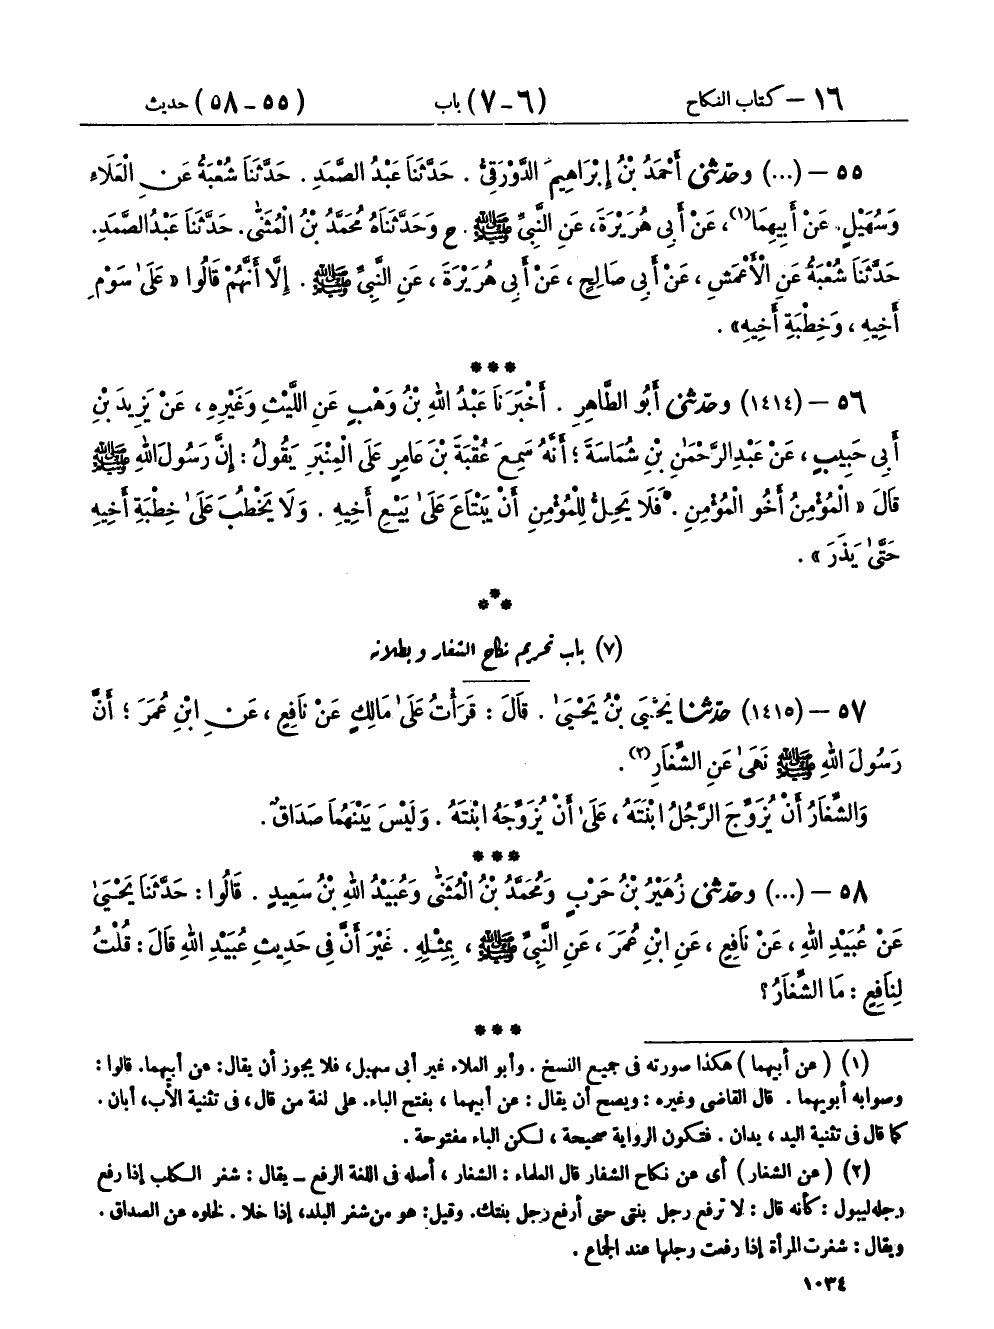 ١٦ – كتاب النكاح (٦ – ٧) باب (٥٥ – ٥٨) حديث
٥٥ – (...) وحَدَّثَنِي أَحْمَدُ بْنُ إِبْرَاهِيمَ الدَّوْرَقِيُّ . حَدَّثَنَا عَبْدُ الصَّمَدِ . حَدَّثَنَا شُعْبَةُ عَنِ الْعَلَاءِ
وَسُهَيْلٍ. عَنْ أَبِيهِمَا(١)، عَنْ أَبِي هُرَيْرَةَ، عَنِ النَّبِيِّ ﷺ . ح وَحَدَّثَنَاهُ مُحَمَّدُ بْنُ الْمُثَنَّى. حَدَّثَنَا عَبْدُ الصَّمَدِ.
حَدَّثَنَا شُعْبَةُ عَنِ الْأَعْمَشِ ، عَنْ أَبِي صَالِحٍ ، عَنْ أَبِي هُرَيْرَةَ ، عَنِ النَّبِيِّ ﷺ . إِلَّا أَنَّهُمْ قَالُوا « عَلَىٰ سَوْمِ
أَخِيهِ ، وَخِطْبَةِ أَخِيهِ» .
***
٥٦ – (١٤١٤) وحَدَّثَنِي أَبُو الطَّاهِرِ . أَخْبَرَنَا عَبْدُ اللهِ بْنُ وَهْبٍ عَنِ اللَّيْثِ وَغَيْرِهِ ، عَنْ يَزِيدَ بْنِ
أَبِي حَبِيبٍ ، عَنْ عَبْدِ الرَّحْمَٰنِ بْنِ شُمَاسَةَ ؛ أَنَّهُ سَمِعَ عُقْبَةَ بْنَ عَامِرٍ عَلَى الْمِنْبَرِ يَقُولُ : إِنَّ رَسُولَ اللهِ ﷺ
قَالَ « الْمُؤْمِنُ أَخُو الْمُؤْمِنِ . فَلَا يَحِلُّ لِلْمُؤْمِنِ أَنْ يَبْتَاعَ عَلَىٰ بَيْعِ أَخِيهِ . وَلَا يَخْطُبَ عَلَىٰ خِطْبَةِ أَخِيهِ
حَتَّىٰ يَذَرَ » .
***
(٧) باب تحريم نكاح الشغار وبطلانه
٥٧ – (١٤١٥) حَدَّثَنَا يَحْيَى بْنُ يَحْيَىٰ . قَالَ : قَرَأْتُ عَلَىٰ مَالِكٍ عَنْ نَافِعٍ ، عَنِ ابْنِ عُمَرَ ؛ أَنَّ
رَسُولَ اللهِ ﷺ نَهَىٰ عَنِ الشِّغَارِ(٢).
وَالشِّغَارُ أَنْ يُزَوِّجَ الرَّجُلُ ابْنَتَهُ ، عَلَىٰ أَنْ يُزَوِّجَهُ ابْنَتَهُ . وَلَيْسَ بَيْنَهُمَا صَدَاقٌ .
***
٥٨ – (...) وحَدَّثَنِي زُهَيْرُ بْنُ حَرْبٍ وَمُحَمَّدُ بْنُ الْمُثَنَّىٰ وَعُبَيْدُ اللهِ بْنُ سَعِيدٍ . قَالُوا : حَدَّثَنَا يَحْيَىٰ
عَنْ عُبَيْدِ اللهِ ، عَنْ نَافِعٍ ، عَنِ ابْنِ عُمَرَ ، عَنِ النَّبِيِّ ﷺ ، بِمِثْلِهِ . غَيْرَ أَنَّ فِي حَدِيثِ عُبَيْدِ اللهِ قَالَ : قُلْتُ
لِنَافِعٍ : مَا الشِّغَارُ؟
***
(١) (عن أبيهما) هكذا صورته فى جميع النسخ . وأبو العلاء غير أبى سهيل، فلا يجوز أن يقال: عن أبيهما. قالوا :
وصوابه أبويهما . قال القاضى وغيره : ويصح أن يقال : عن أبيهما ، بفتح الباء. على لغة من قال، فى تثنية الأب، أبان .
كما قال فى تثنية اليد ، يدان . فتكون الرواية صحيحة ، لكن الباء مفتوحة .
(٢) (عن الشغار) أى عن نكاح الشغار قال العلماء : الشغار ، أصله فى اللغة الرفع – يقال : شغر الكلب إذا رفع
رجله ليبول : كأنه قال : لا ترفع رجل بنتى حتى أرفع رجل بنتك. وقيل: هو من شغر البلد، إذا خلا . لخلوه عن الصداق .
ويقال : شغرت المرأة إذا رفعت رجلها عند الجماع .
١٠٣٤